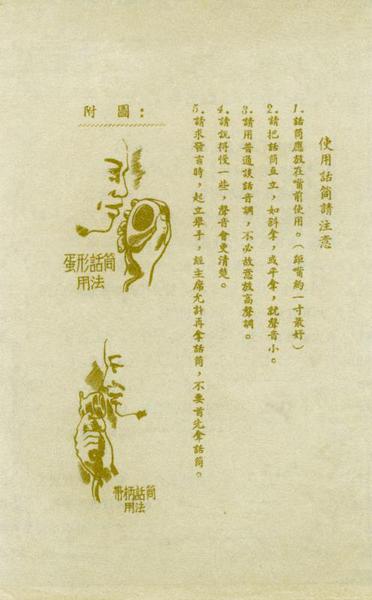 使用話筒請注意
1.話筒應放在嘴前使用。(距嘴約一寸最好)
2.請把話筒直立，如斜拿，或平拿，就聲音小。
3.請用普通談話音調，不必故意放高聲調。
4.請說得慢一些，聲音會更清楚。
5.請求發言時，起立舉手，經主席允許再拿話筒，不要首先拿話筒。
附圖：
蛋形話筒
用法
帶柄話筒
用法